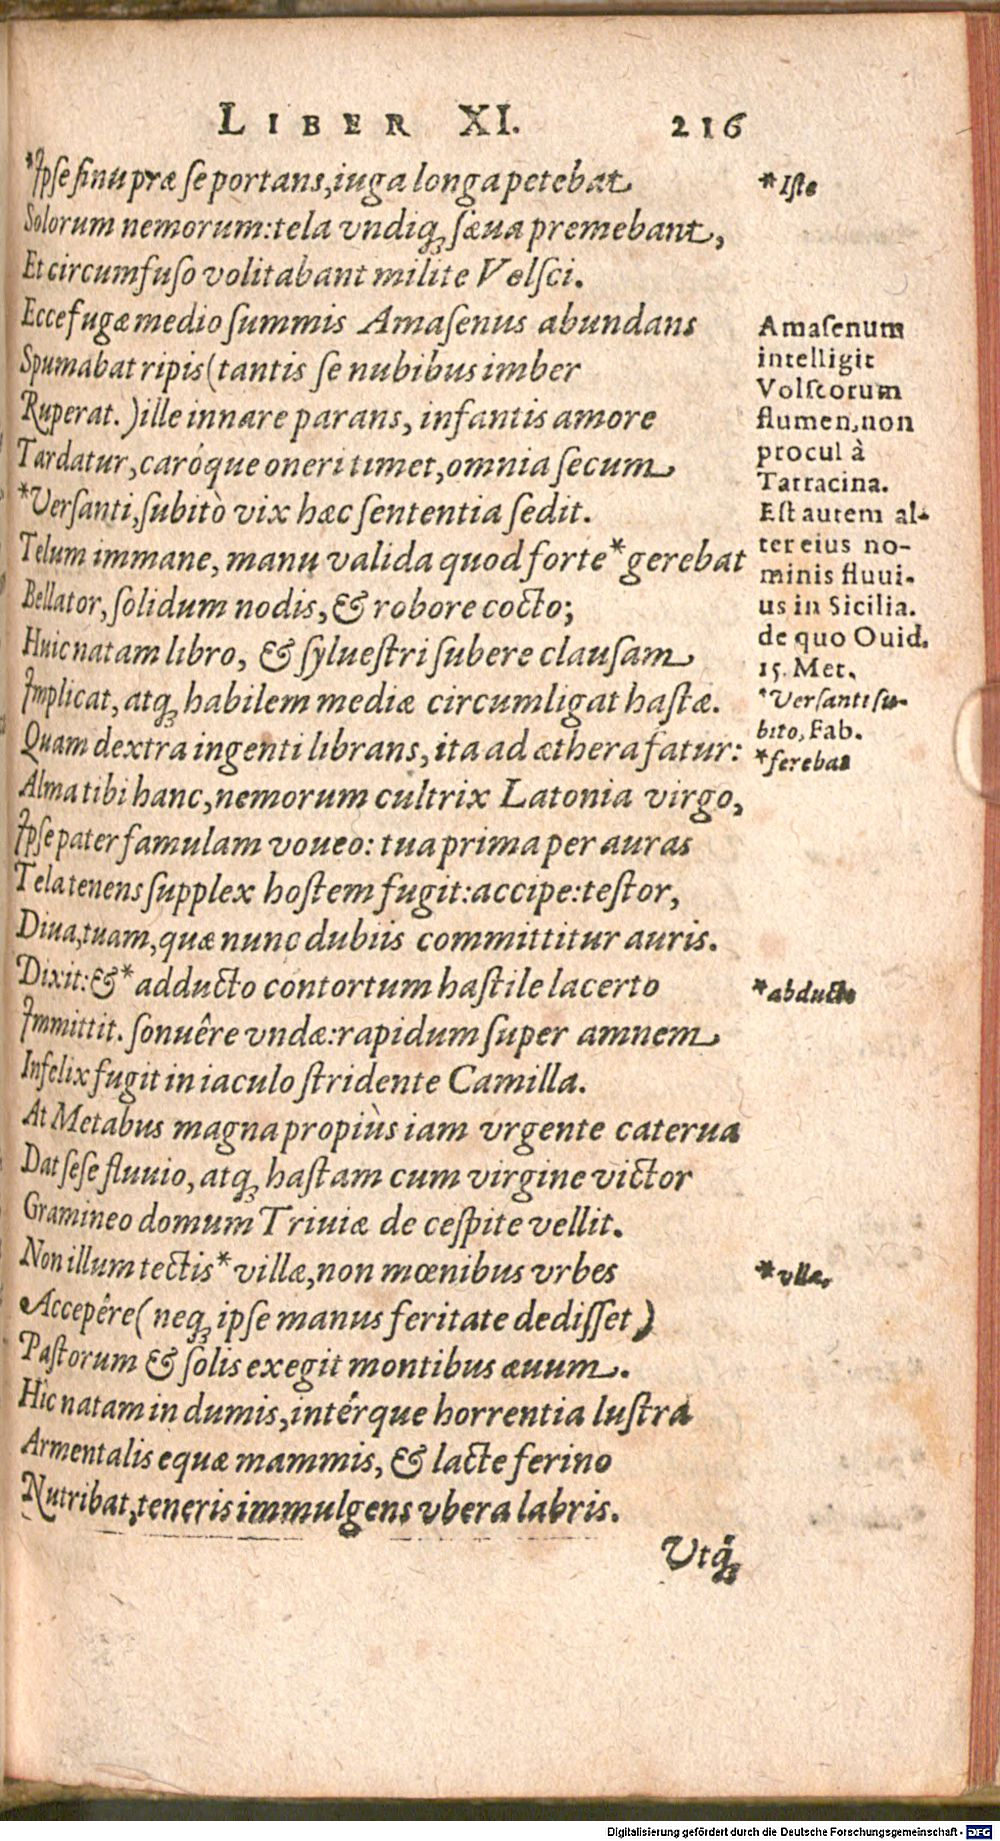 LIBER XI. 216
*Ipse sinu præ se portans, iuga longa petebat
Solorum nemorum: tela vndiq; sæua premebant,
Et circumfuso volitabant milite Volsci.
Ecce fugæ medio summis Amasenus abundans
Spumabat ripis (tantis se nubibus imber
Ruperat.) ille innare parans, infantis amore
Tardatur, caróque oneri timet, omnia secum
*Versanti, subitò vix hæc sententia sedit.
Telum immane, manu valida quod forte *gerebat
Bellator, solidum nodis, & robore cocto;
Huic natam libro, & syluestri subere clausam
Implicat, atq; habilem mediæ circumligat hastæ.
Quam dextra ingenti librans, ita ad æthera fatur:
Alma tibi hanc, nemorum cultrix Latonia virgo,
Ipse pater famulam voueo: tua prima per auras
Tela tenens supplex hostem fugit: accipe: testor,
Diua, tuam, quæ nunc dubiis committitur auris.
Dixit: & *adducto contortum hastile lacerto
Immittit. sonuêre vndæ: rapidum super amnem
Infelix fugit in iaculo stridente Camilla.
At Metabus magna propiùs iam vrgente caterua
Dat sese fluuio, atq; hastam cum virgine victor
Gramineo domum Triuiæ de cespite vellit.
Non illum tectis *villæ, non mœnibus vrbes
Accepêre (neq; ipse manus feritate dedisset)
Pastorum & solis exegit montibus æuum.
Hîc natam in dumis, intérque horrentia lustra
Armentalis equæ mammis, & lacte ferino
Nutribat, teneris immulgens vbera labris.
Vtq́;
*Iste
Amasenum
intelligit
Volscorum
flumen, non
procul à
Tarracina.
Est autem al-
ter eius no-
minis fluui-
us in Sicilia.
de quo Ouid.
15. Met.
*Versanti su-
bito, Fab.
*ferebat
*abducto
*vllæ,
Digitalisierung gefördert durch die Deutsche Forschungsgemeinschaft - DFG